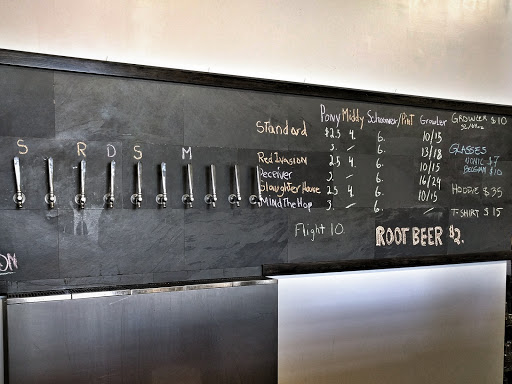 Pony Middy Schooner/Pint Growler GROWLER $10
Standard $2.5 4. 6. 10/15 32/64oz
S R D S M
3. — 6. 13/18 GLASSES
Red Invasion 2.5 4. 6. 10/15 NONIC $7
Deceiver 3. — 6. 16/24 BELGIAN $10
Slaughter House 2.5 4 6. 10/15 HODDIE $35
MindTheHop 3. — 6. —
T-SHIRT $15
Flight 10
ROOT BEER $2.
ON